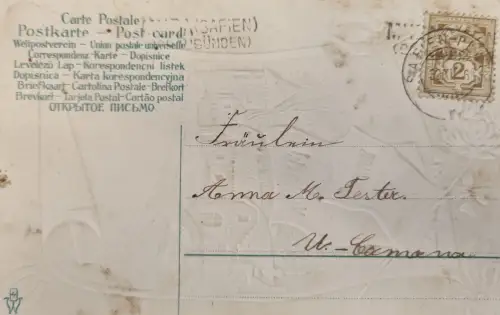 Carte Postale
Postkarte – Post card
Weltpostverein – Union postale universelle
Correspondenz-Karte – Dopisnice
Levelező Lap – Korespondenční listek
Dopisnica – Karta korespondencyjna
Briefkaart – Cartolina Postale – Brefkort
Brevkort – Tarjeta Postal – Cartão postal
ОТКРЫТОЕ ПИСЬМО
SAFIEN)
BÜNDEN)
2
Fräulein
Anna M. Tester
U.-Camana